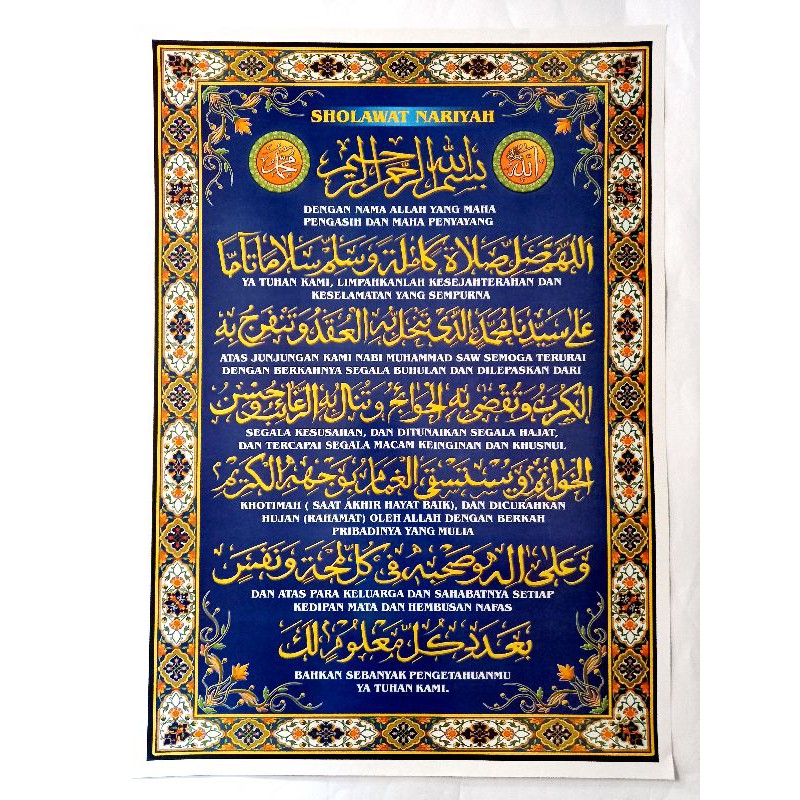 SHOLAWAT NARIYAH
محمد
بسم الله الرحمن الرحيم
الله
DENGAN NAMA ALLAH YANG MAHA
PENGASIH DAN MAHA PENYAYANG
اللهم صل صلاة كاملة وسلم سلاما تاما
YA TUHAN KAMI, LIMPAHKANLAH KESEJAHTERAHAN DAN
KESELAMATAN YANG SEMPURNA
على سيدنا محمد الذي تنحل به العقد وتنفرج به
ATAS JUNJUNGAN KAMI NABI MUHAMMAD SAW SEMOGA TERURAI
DENGAN BERKAHNYA SEGALA BUHULAN DAN DILEPASKAN DARI
الكرب وتقضى به الحوائج وتنال به الرغائب وحسن
SEGALA KESUSAHAN, DAN DITUNAIKAN SEGALA HAJAT,
DAN TERCAPAI SEGALA MACAM KEINGINAN DAN KHUSNUL
الخواتم ويستسقى الغمام بوجهه الكريم
KHOTIMAH ( SAAT AKHIR HAYAT BAIK), DAN DICURAHKAN
HUJAN (RAHAMAT) OLEH ALLAH DENGAN BERKAH
PRIBADINYA YANG MULIA
وعلى اله وصحبه في كل لمحة ونفس
DAN ATAS PARA KELUARGA DAN SAHABATNYA SETIAP
KEDIPAN MATA DAN HEMBUSAN NAFAS
بعدد كل معلوم لك
BAHKAN SEBANYAK PENGETAHUANMU
YA TUHAN KAMI.